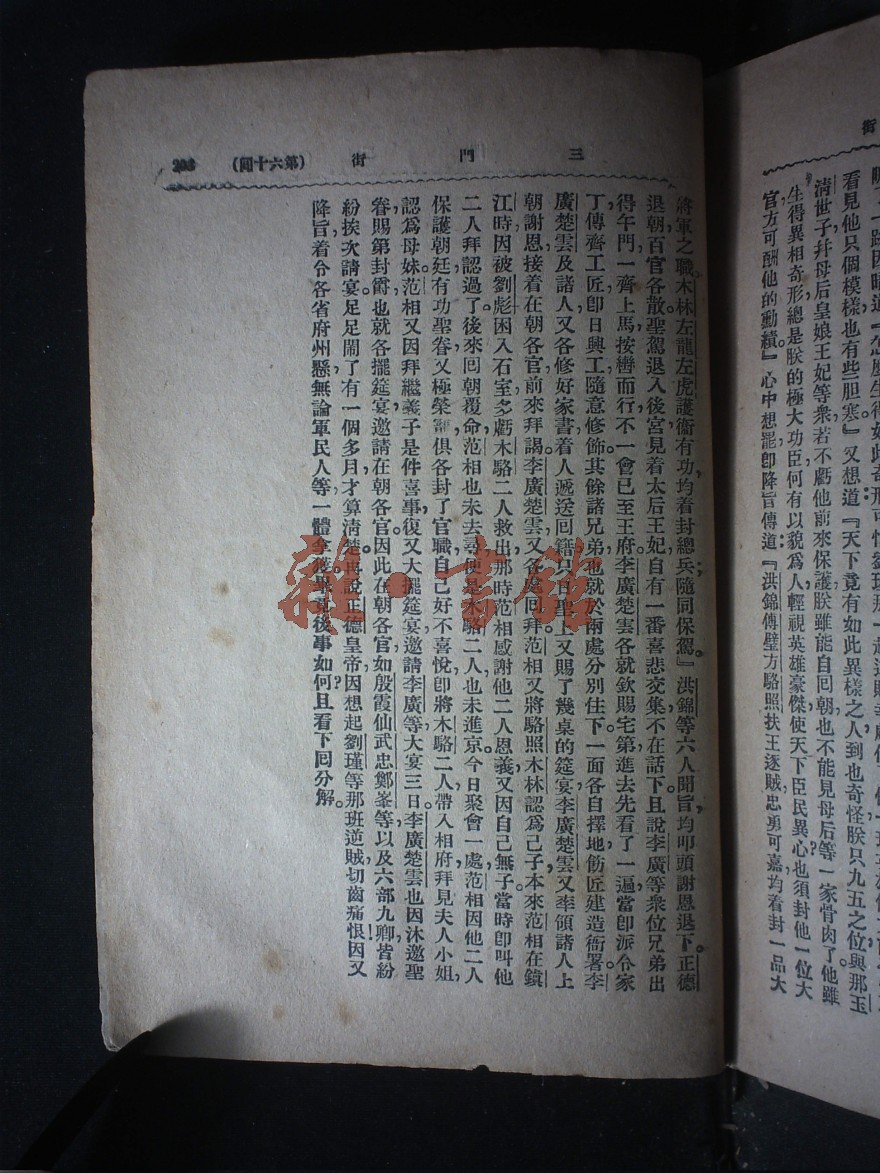 街
一跳因暗道『怎麼生得如此奇形可怕劉瑾那一起逆賊
看見他只個模樣也有些胆寒』又想道『天下竟有如此異樣之人到也奇怪朕只九五之位與那玉
淸世子幷母后皇娘王妃等衆若不虧他前來保護朕雖能自囘朝也不能見母后等一家骨肉了他雖
生得異相奇形總是朕的極大功臣何有以貌爲人輕視英雄豪傑使天下臣民異心也須封他一位大
官方可酬他的勳績』心中想罷卽降旨傳道『洪錦傅璧方駱照扶王逐賊忠勇可嘉均着封一品大
三門街 (第六十囘) 203
將軍之職木林左龍左虎護衞有功均着封總兵隨同保駕』洪錦等六人聞旨均叩頭謝恩退下。正德
退朝百官各散聖駕退入後宮見着太后王妃自有一番喜悲交集不在話下且說李廣等衆位兄弟出
得午門一齊上馬按轡而行不一會已至王府李廣楚雲各就欽賜宅第進去先看了一遍當卽派令家
丁傳齊工匠卽日興工隨意修飾其餘諸兄弟也就於兩處分別住下一面各自擇地飭匠建造衙署李
廣楚雲及諸人又各修好家書着人遞送囘籍只日聖上又賜了幾桌的筵宴李廣楚雲又率領諸人上
朝謝恩接着在朝各官前來拜謁李廣楚雲又各處囘拜范相又將駱照木林認爲己子本來范相在鎭
江時因被劉彪困入石室多虧木駱二人救出那時范相感謝他二人恩義又因自己無子當時卽叫他
二人拜認過了後來囘朝覆命范相也未去尋便是木駱二人也未進京今日聚會一處范相因他二人
保護朝廷有功聖眷又極榮寵俱各封了官職自己好不喜悅卽將木駱二人帶入相府拜見夫人小姐
認爲母妹范相又因拜繼義子是件喜事復又大擺筵宴邀請李廣等大宴三日李廣楚雲也因沐邀聖
眷賜第封爵也就各擺筵宴邀請在朝各官因此在朝各官如殷霞仙武忠鄭峯等以及六部九卿皆紛
紛挨次請宴足足鬧了有一個多月才算淸楚。再說正德皇帝因想起劉瑾等那班逆賊切齒痛恨因又
降旨着令各省府州懸無論軍民人等一體拿獲畢竟後事如何且看下囘分解。
雜·書館